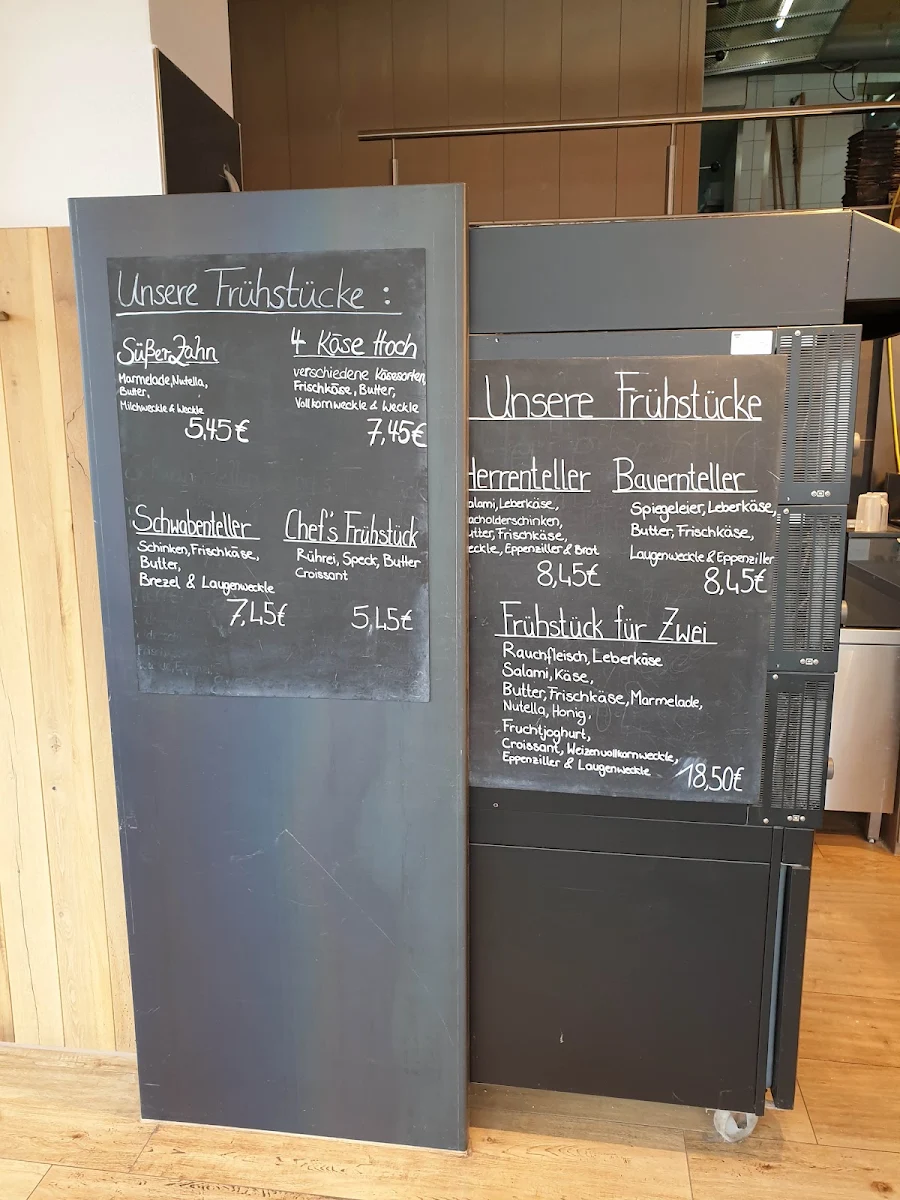 Unsere Frühstücke :
Süßer Zahn
Marmelade, Nutella,
Butter,
Milchweckle & Weckle
5,45€
4 Käse Hoch
verschiedene Käsesorten,
Frischkäse, Butter,
Vollkornweckle & Weckle
7,45€
Schwabenteller
Schinken, Frischkäse,
Butter,
Brezel & Laugenweckle
7,45€
Chef's Frühstück
Rührei, Speck, Butter
Croissant
5,45€
Unsere Frühstücke
Herrenteller
alami, Leberkäse,
acholderschinken,
utter, Frischkäse,
eckle, Eppenziller & Brot
8,45€
Bauernteller
Spiegeleier, Leberkäse,
Butter, Frischkäse,
Laugenweckle & Eppenziller
8,45€
Frühstück für Zwei
Rauchfleisch, Leberkäse
Salami, Käse,
Butter, Frischkäse, Marmelade,
Nutella, Honig,
Fruchtjoghurt,
Croissant, Weizenvollkornweckle,
Eppenziller & Laugenweckle
18,50€